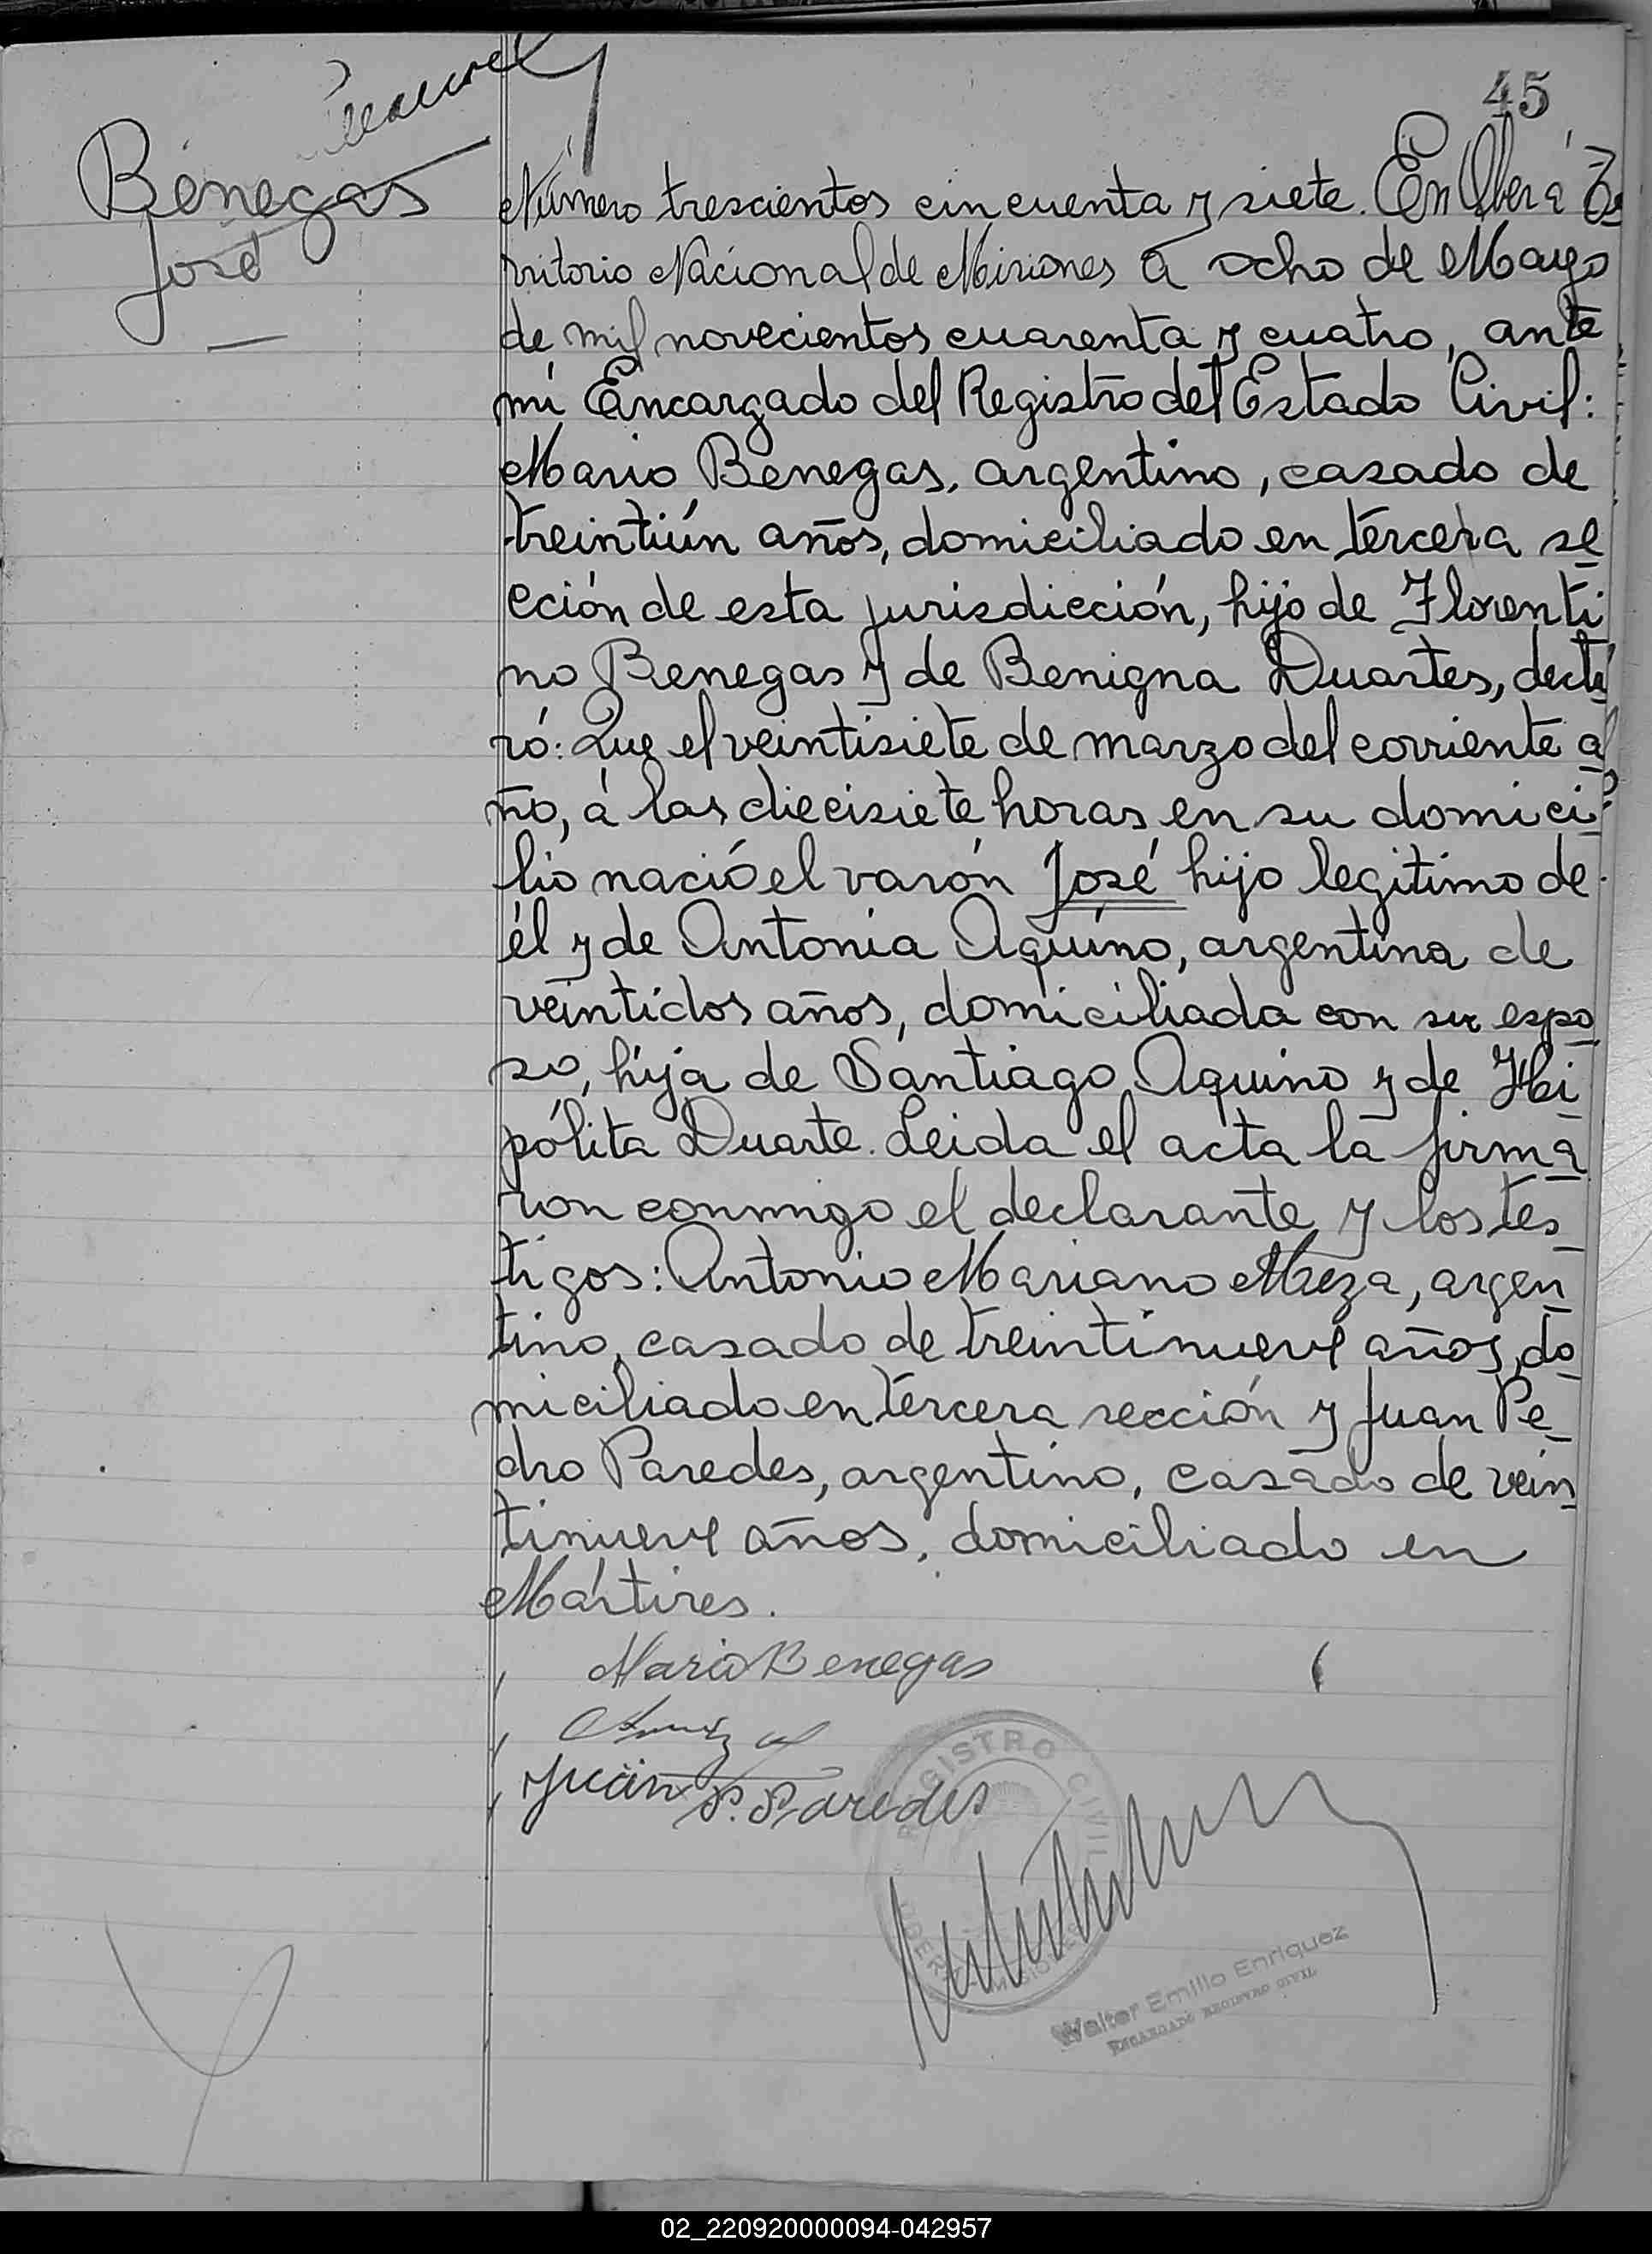 45
Benegas
José
Número trescientos cincuenta y siete. En Oberá Te
rritorio Nacional de Misiones a ocho de Mayo
de mil novecientos cuarenta y cuatro, ante
mí Encargado del Registro del Estado Civil:
Mario Benegas, argentino, casado de
treintiún años, domiciliado en tercera se
cción de esta jurisdicción, hijo de Florenti
no Benegas y de Benigna Duartes, decla
ró: Que el veintisiete de marzo del corriente a
ño, á las diecisiete horas en su domici
lio nació el varón José hijo legítimo de
él y de Antonia Aquino, argentina de
veintidos años, domiciliada con su espo
so, hija de Santiago Aquino y de Hi
pólita Duarte. Leida el acta la firma
ron conmigo el declarante y los tes
tigos: Antonio Mariano Meza, argen
tino, casado de treintinueve años, do
miciliado en tercera sección y Juan Pe
dro Paredes, argentino, casado de vein
tinueve años, domiciliado en
Mártires.
Mario Benegas
Juan P. Paredes
REGISTRO CIVIL
MISIONES
Walter Emilio Enriquez
ENCARGADO REGISTRO CIVIL
02_220920000094-042957